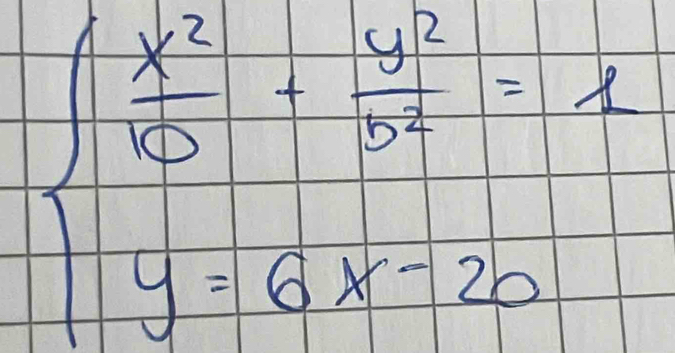 x²/10 + y²/b² = 1
y = 6x - 20